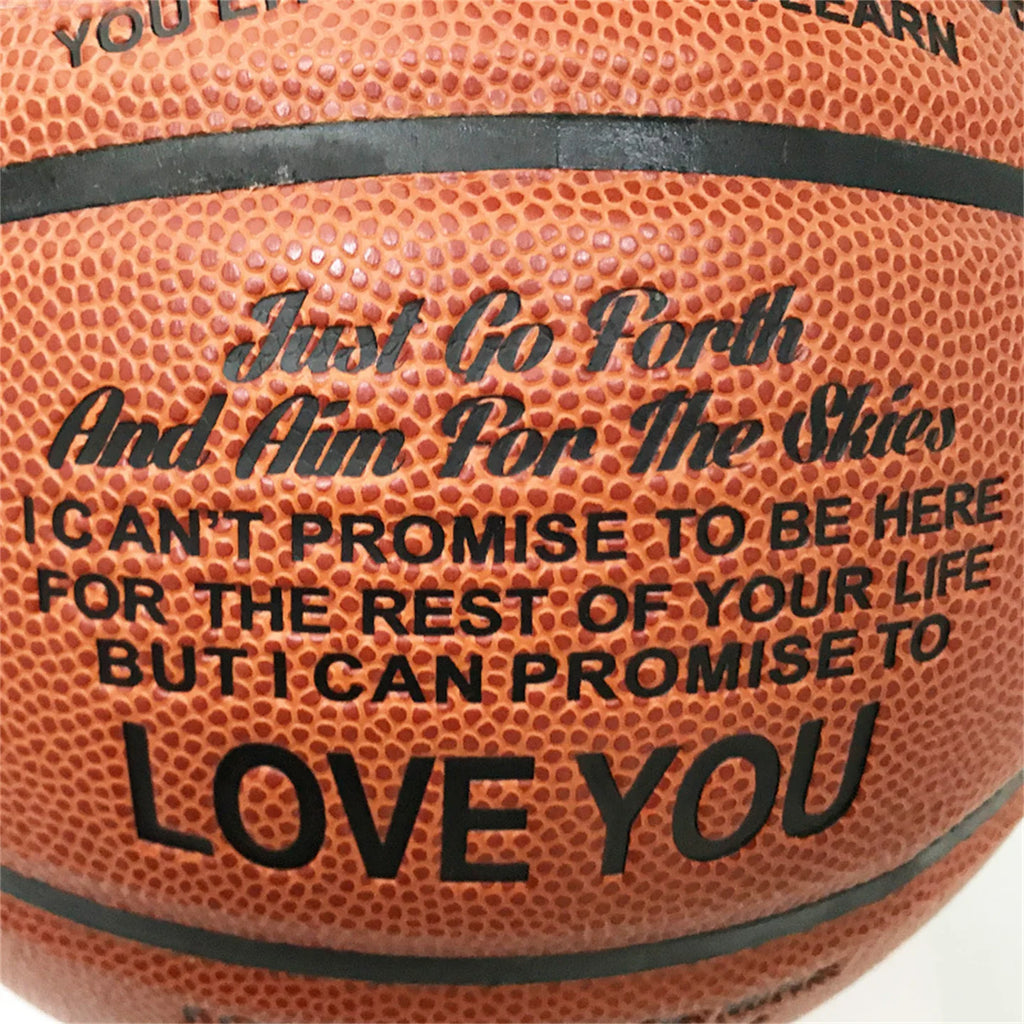 YOU LEARN
Just Go Forth
And Aim For The Skies
I CAN'T PROMISE TO BE HERE
FOR THE REST OF YOUR LIFE
BUT I CAN PROMISE TO
LOVE YOU